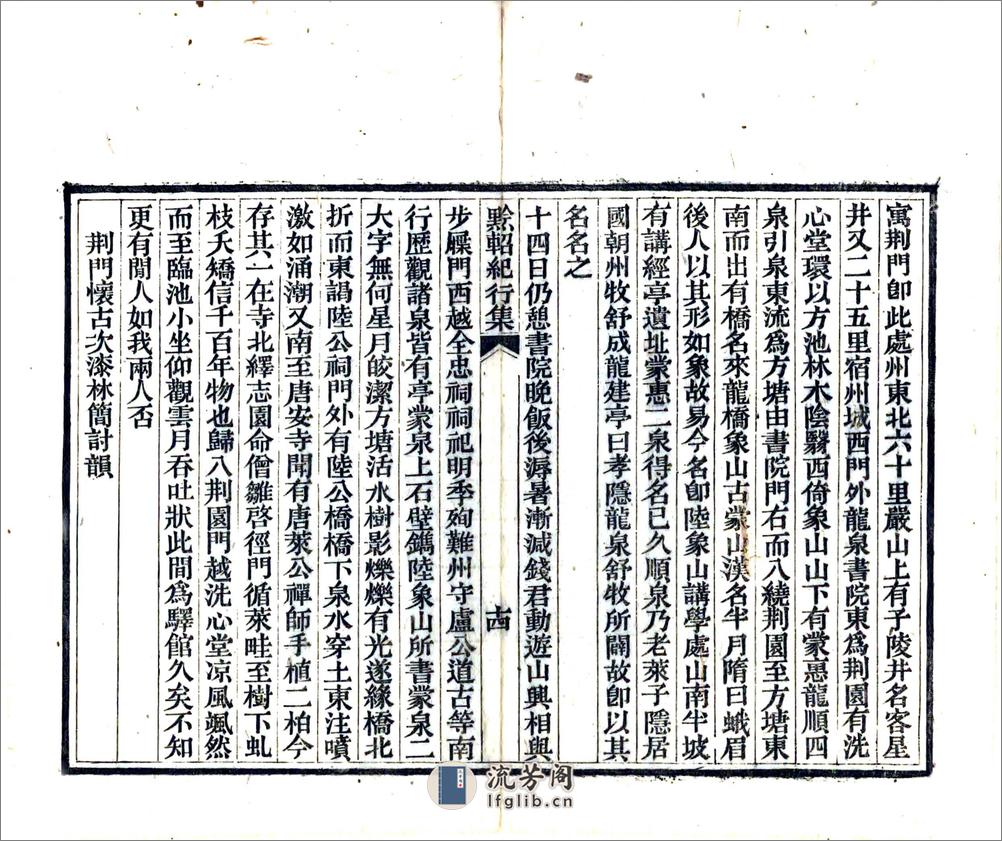 寓荆門卽此處州東北六十里嚴山上有子陵井名客星
井又二十五里宿州城西門外龍泉書院東爲荆園有洗
心堂環以方池林木陰翳西倚象山山下有蒙惠龍順四
泉引泉東流爲方塘由書院門右而入繞荆園至方塘東
南而出有橋名來龍橋象山古蒙山漢名半月隋曰蛾眉
後人以其形如象故易今名卽陸象山講學處山南半坡
有講經亭遺址蒙惠二泉得名已久順泉乃老萊子隱居
國朝州牧舒成龍建亭曰孝隱龍泉舒牧所闢故卽以其
名名之
十四日仍憩書院晚飯後溽暑漸減錢君動遊山興相與
黔軺紀行集
十四
步屧門西越全忠祠祠祀明季殉難州守盧公道古等南
行歷觀諸泉皆有亭蒙泉上石壁鐫陸象山所書蒙泉二
大字無何星月皎潔方塘活水樹影爍爍有光遂緣橋北
折而東謁陸公祠門外有陸公橋橋下泉水穿土東注噴
激如涌潮又南至唐安寺聞有唐萊公禪師手植二柏今
存其一在寺北繹志園命僧雛啓徑門循萊畦至樹下虬
枝夭矯信千百年物也歸入荆園門越洗心堂凉風颯然
而至臨池小坐仰觀雲月吞吐狀此間爲驛館久矣不知
更有閒人如我兩人否
荆門懷古次漆林簡討韻
流芳阁
lfglib.cn